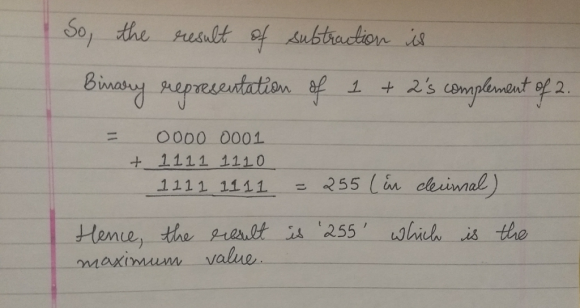 So, the result of subtraction is
Binary representation of 1 + 2's complement of 2.
= 0000 0001
+ 1111 1110
1111 1111 = 255 (in decimal)
Hence, the result is '255' which is the
maximum value.